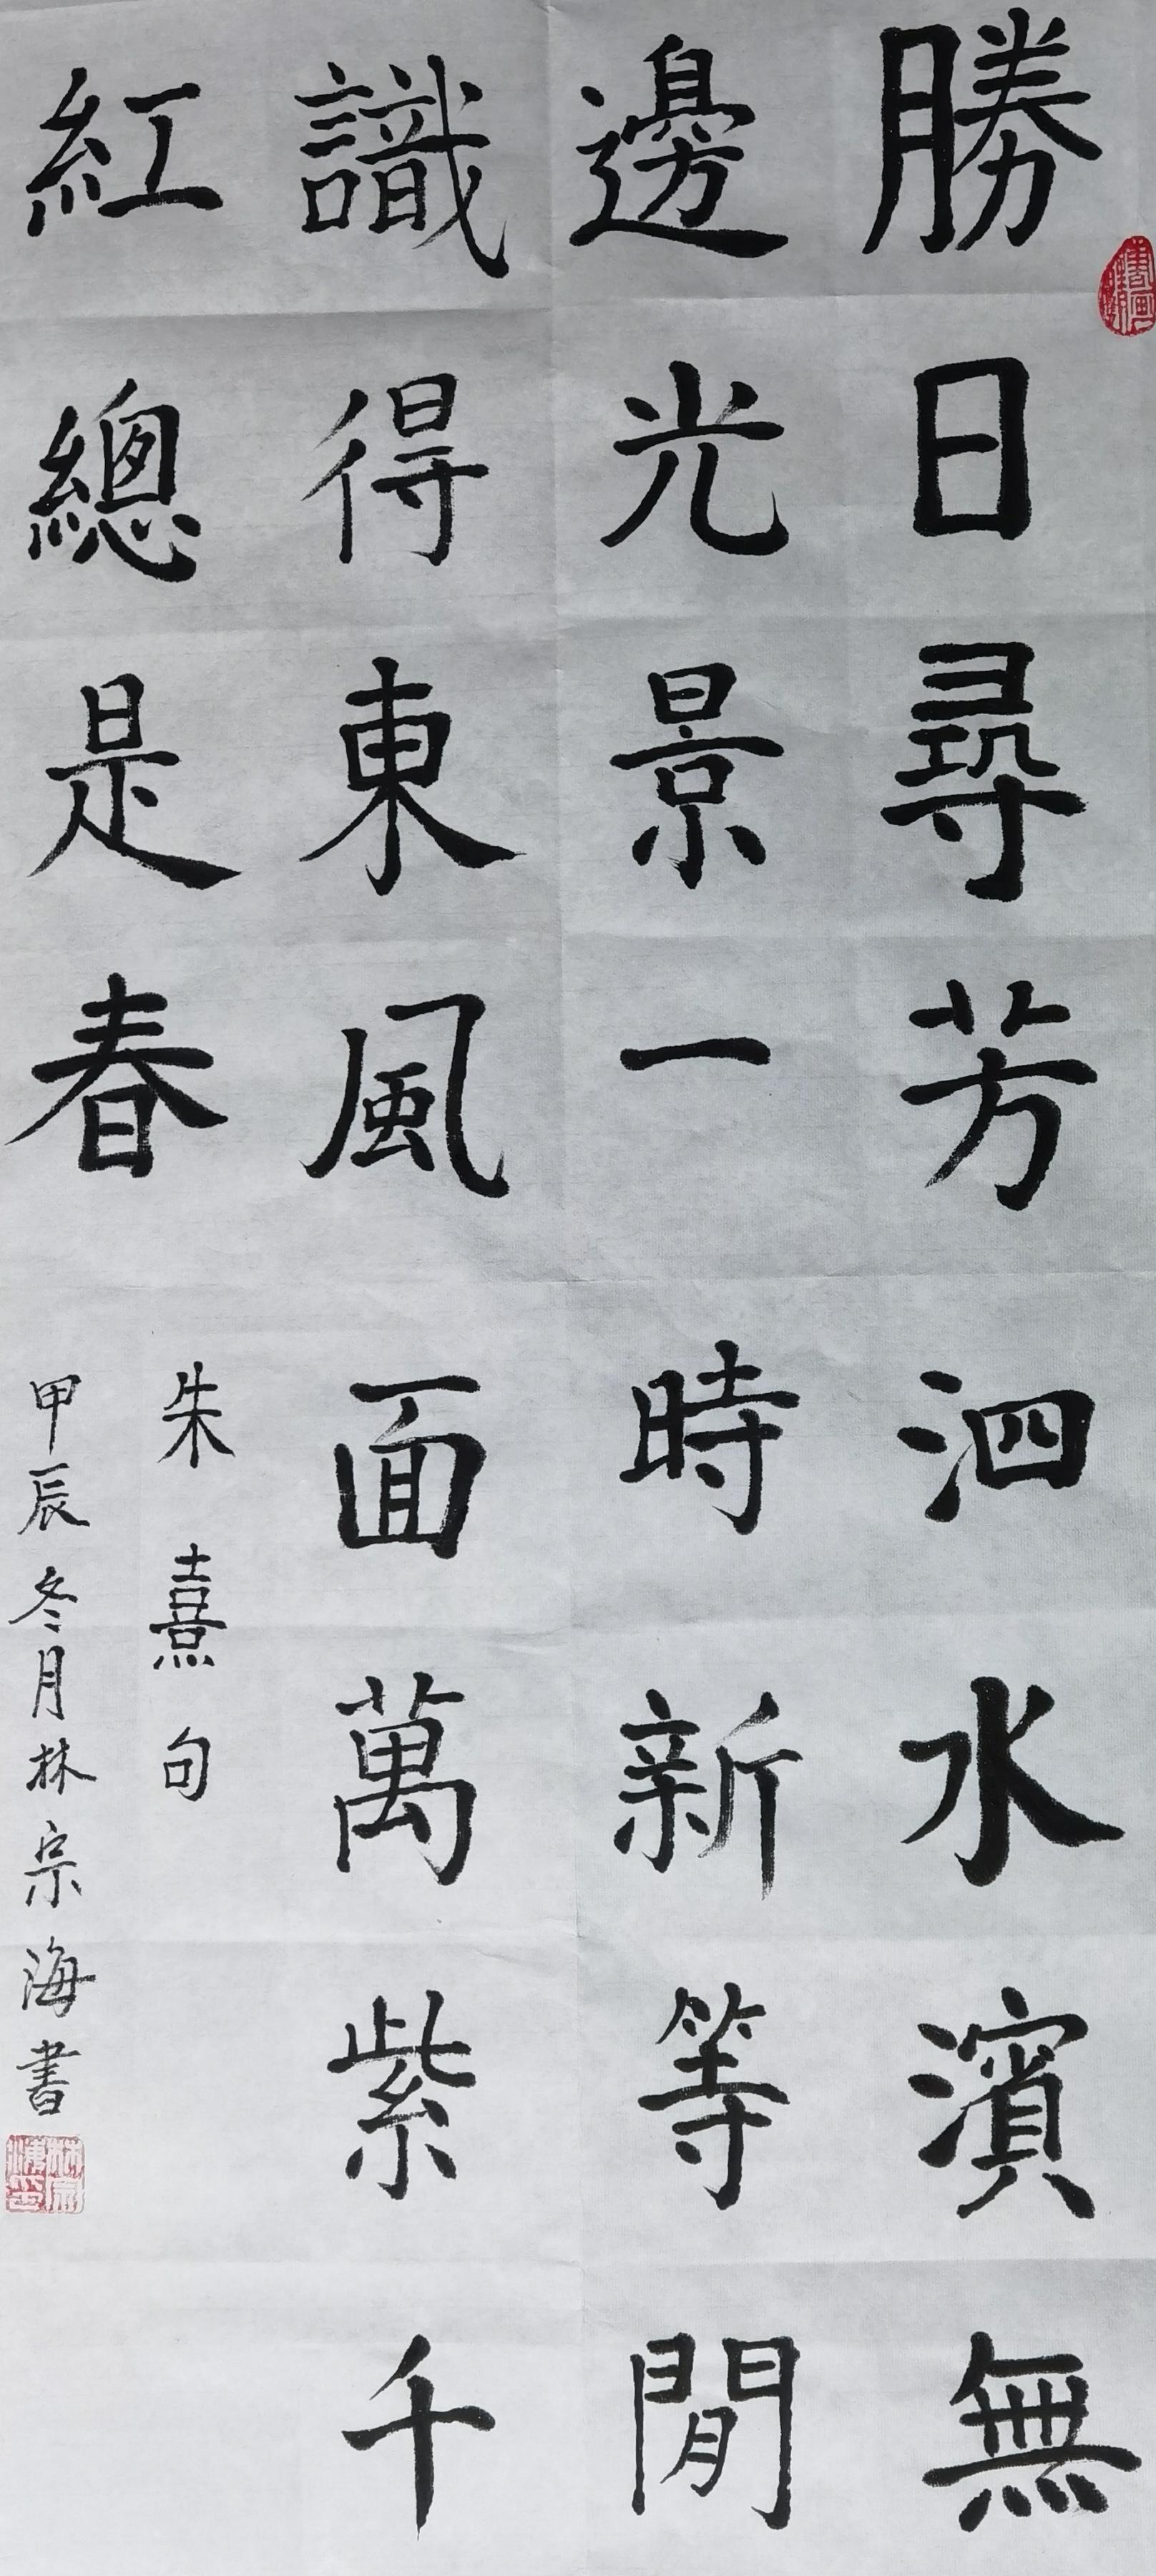 勝日尋芳泗水濱無
邊光景一時新等閒
識得東風面萬紫千
紅總是春
朱熹句
甲辰冬月林宗海書